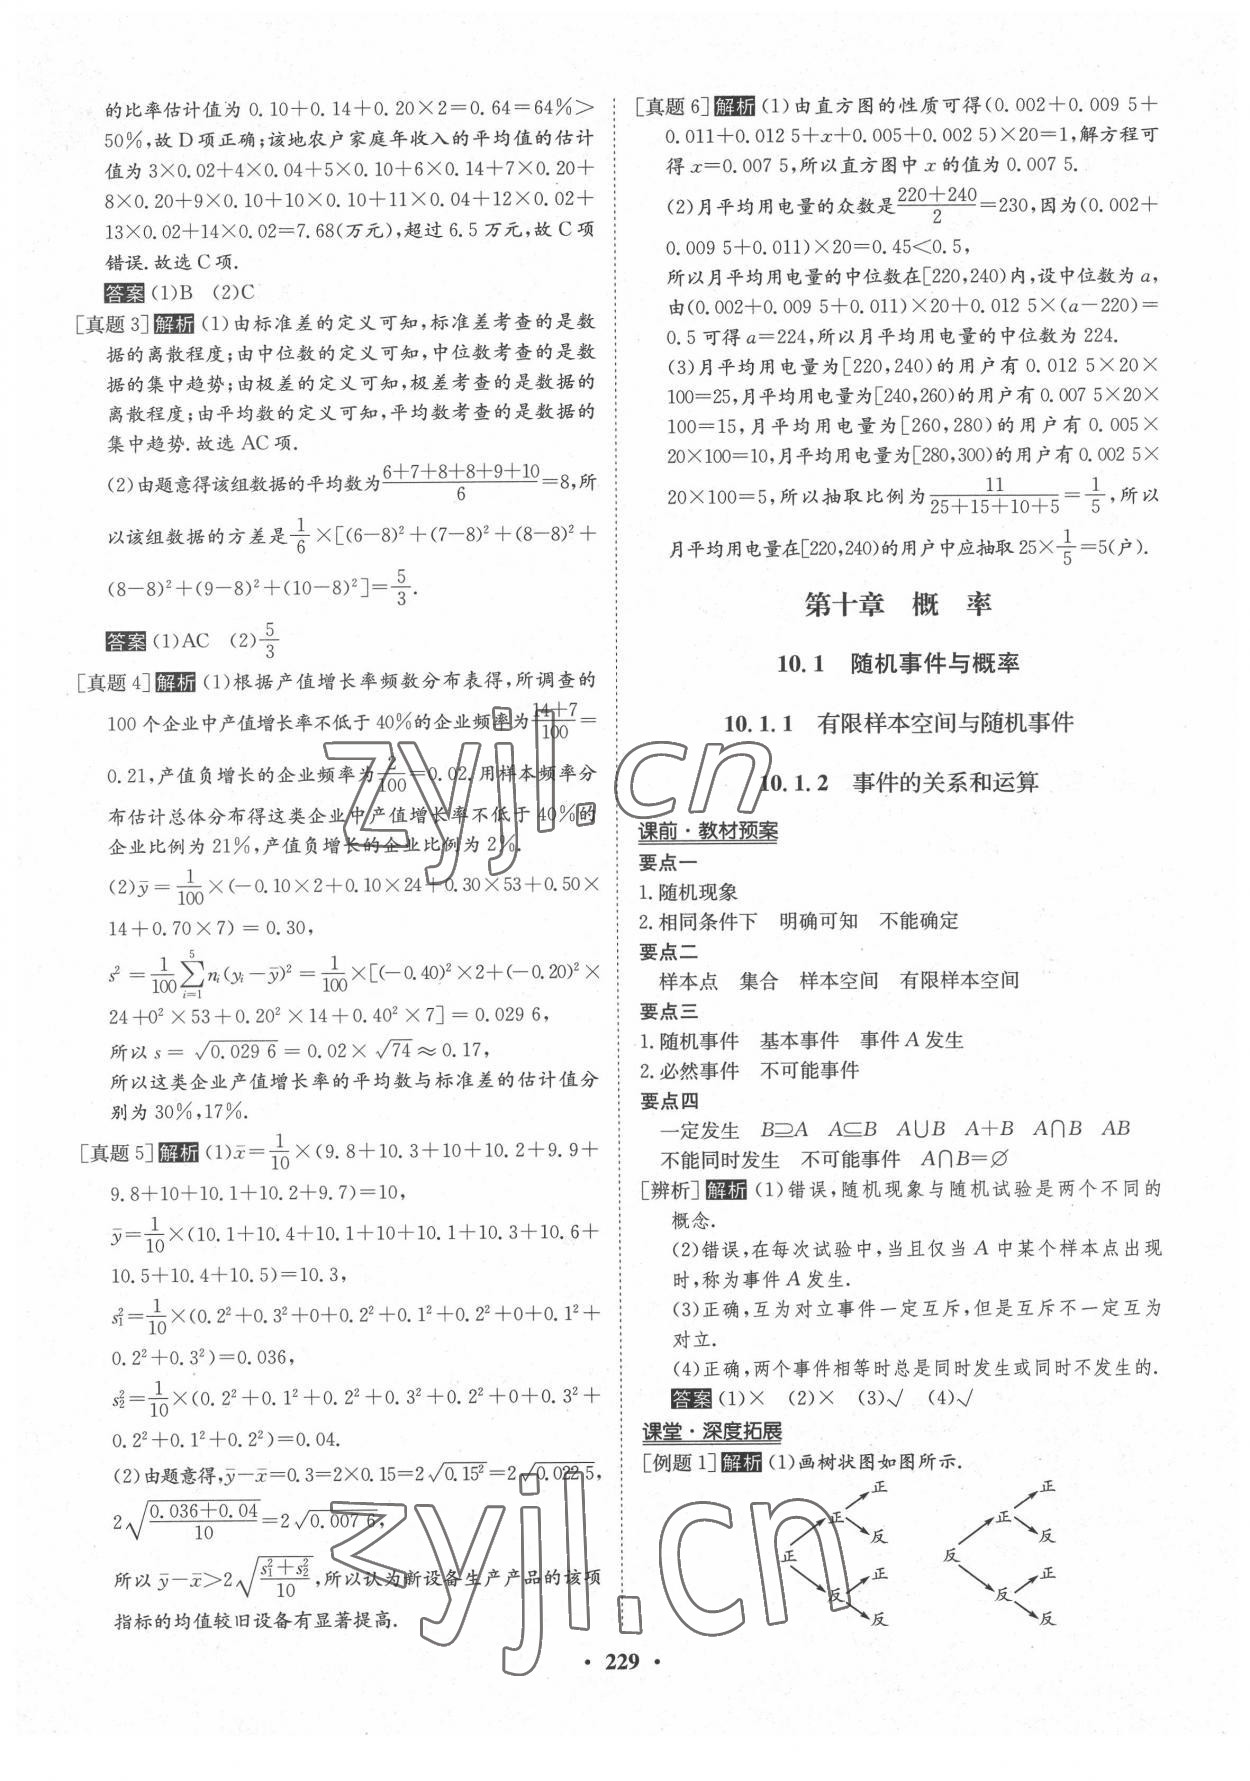 的比率估计值为 0.10+0.14+0.20×2=0.64=64%>
50%,故 D 项正确;该地农户家庭年收入的平均值的估计
值为 3×0.02+4×0.04+5×0.10+6×0.14+7×0.20+
8×0.20+9×0.10+10×0.10+11×0.04+12×0.02+
13×0.02+14×0.02=7.68(万元),超过 6.5 万元,故 C 项
错误.故选 C 项.
答案 (1)B (2)C
[真题 3]解析 (1)由标准差的定义可知,标准差考查的是数
据的离散程度;由中位数的定义可知,中位数考查的是数
据的集中趋势;由极差的定义可知,极差考查的是数据的
离散程度;由平均数的定义可知,平均数考查的是数据的
集中趋势.故选 AC 项.
(2)由题意得该组数据的平均数为(6+7+8+8+9+10)/6=8,所
以该组数据的方差是1/6×[(6-8)²+(7-8)²+(8-8)²+
(8-8)²+(9-8)²+(10-8)²]=5/3.
答案 (1)AC (2)5/3
[真题 4]解析 (1)根据产值增长率频数分布表得,所调查的
100 个企业中产值增长率不低于 40%的企业频率为(14+7)/100=
0.21,产值负增长的企业频率为2/100=0.02.用样本频率分
布估计总体分布得这类企业中产值增长率不低于 40%的
企业比例为 21%,产值负增长的企业比例为 2%.
(2)ȳ=1/100×(-0.10×2+0.10×24+0.30×53+0.50×
14+0.70×7)=0.30,
s²=1/100 ∑_{i=1}^{5} nᵢ(yᵢ-ȳ)²=1/100×[(-0.40)²×2+(-0.20)²×
24+0²×53+0.20²×14+0.40²×7]=0.029 6,
所以 s=√0.029 6=0.02×√74≈0.17,
所以这类企业产值增长率的平均数与标准差的估计值分
别为 30%,17%.
[真题 5]解析 (1)x̄=1/10×(9.8+10.3+10+10.2+9.9+
9.8+10+10.1+10.2+9.7)=10,
ȳ=1/10×(10.1+10.4+10.1+10+10.1+10.3+10.6+
10.5+10.4+10.5)=10.3,
s₁²=1/10×(0.2²+0.3²+0+0.2²+0.1²+0.2²+0+0.1²+
0.2²+0.3²)=0.036,
s₂²=1/10×(0.2²+0.1²+0.2²+0.3²+0.2²+0+0.3²+
0.2²+0.1²+0.2²)=0.04.
(2)由题意得,ȳ-x̄=0.3=2×0.15=2√0.15²=2√0.022 5,
2√((0.036+0.04)/10)=2√0.007 6,
所以 ȳ-x̄>2√((s₁²+s₂²)/10),所以认为新设备生产产品的该项
指标的均值较旧设备有显著提高.
[真题 6]解析 (1)由直方图的性质可得(0.002+0.009 5+
0.011+0.012 5+x+0.005+0.002 5)×20=1,解方程可
得 x=0.007 5,所以直方图中 x 的值为 0.007 5.
(2)月平均用电量的众数是(220+240)/2=230,因为(0.002+
0.009 5+0.011)×20=0.45<0.5,
所以月平均用电量的中位数在[220,240)内,设中位数为 a,
由(0.002+0.009 5+0.011)×20+0.012 5×(a-220)=
0.5 可得 a=224,所以月平均用电量的中位数为 224.
(3)月平均用电量为[220,240)的用户有 0.012 5×20×
100=25,月平均用电量为[240,260)的用户有 0.007 5×20×
100=15,月平均用电量为[260,280)的用户有 0.005×
20×100=10,月平均用电量为[280,300)的用户有 0.002 5×
20×100=5,所以抽取比例为11/(25+15+10+5)=1/5,所以
月平均用电量在[220,240)的用户中应抽取 25×1/5=5(户).
第十章 概 率
10.1 随机事件与概率
10.1.1 有限样本空间与随机事件
10.1.2 事件的关系和运算
课前·教材预案
要点一
1.随机现象
2.相同条件下 明确可知 不能确定
要点二
样本点 集合 样本空间 有限样本空间
要点三
1.随机事件 基本事件 事件 A 发生
2.必然事件 不可能事件
要点四
一定发生 B⊇A A⊆B A∪B A+B A∩B AB
不能同时发生 不可能事件 A∩B=∅
[辨析]解析 (1)错误,随机现象与随机试验是两个不同的
概念.
(2)错误,在每次试验中,当且仅当 A 中某个样本点出现
时,称为事件 A 发生.
(3)正确,互为对立事件一定互斥,但是互斥不一定互为
对立.
(4)正确,两个事件相等时总是同时发生或同时不发生的.
答案 (1)× (2)× (3)√ (4)√
课堂·深度拓展
[例题 1]解析 (1)画树状图如图所示.
正 正
正 正
反 反
正 反
正 正
反 反
反 反
· 229 ·
zyjl.cn
zyjl.cn